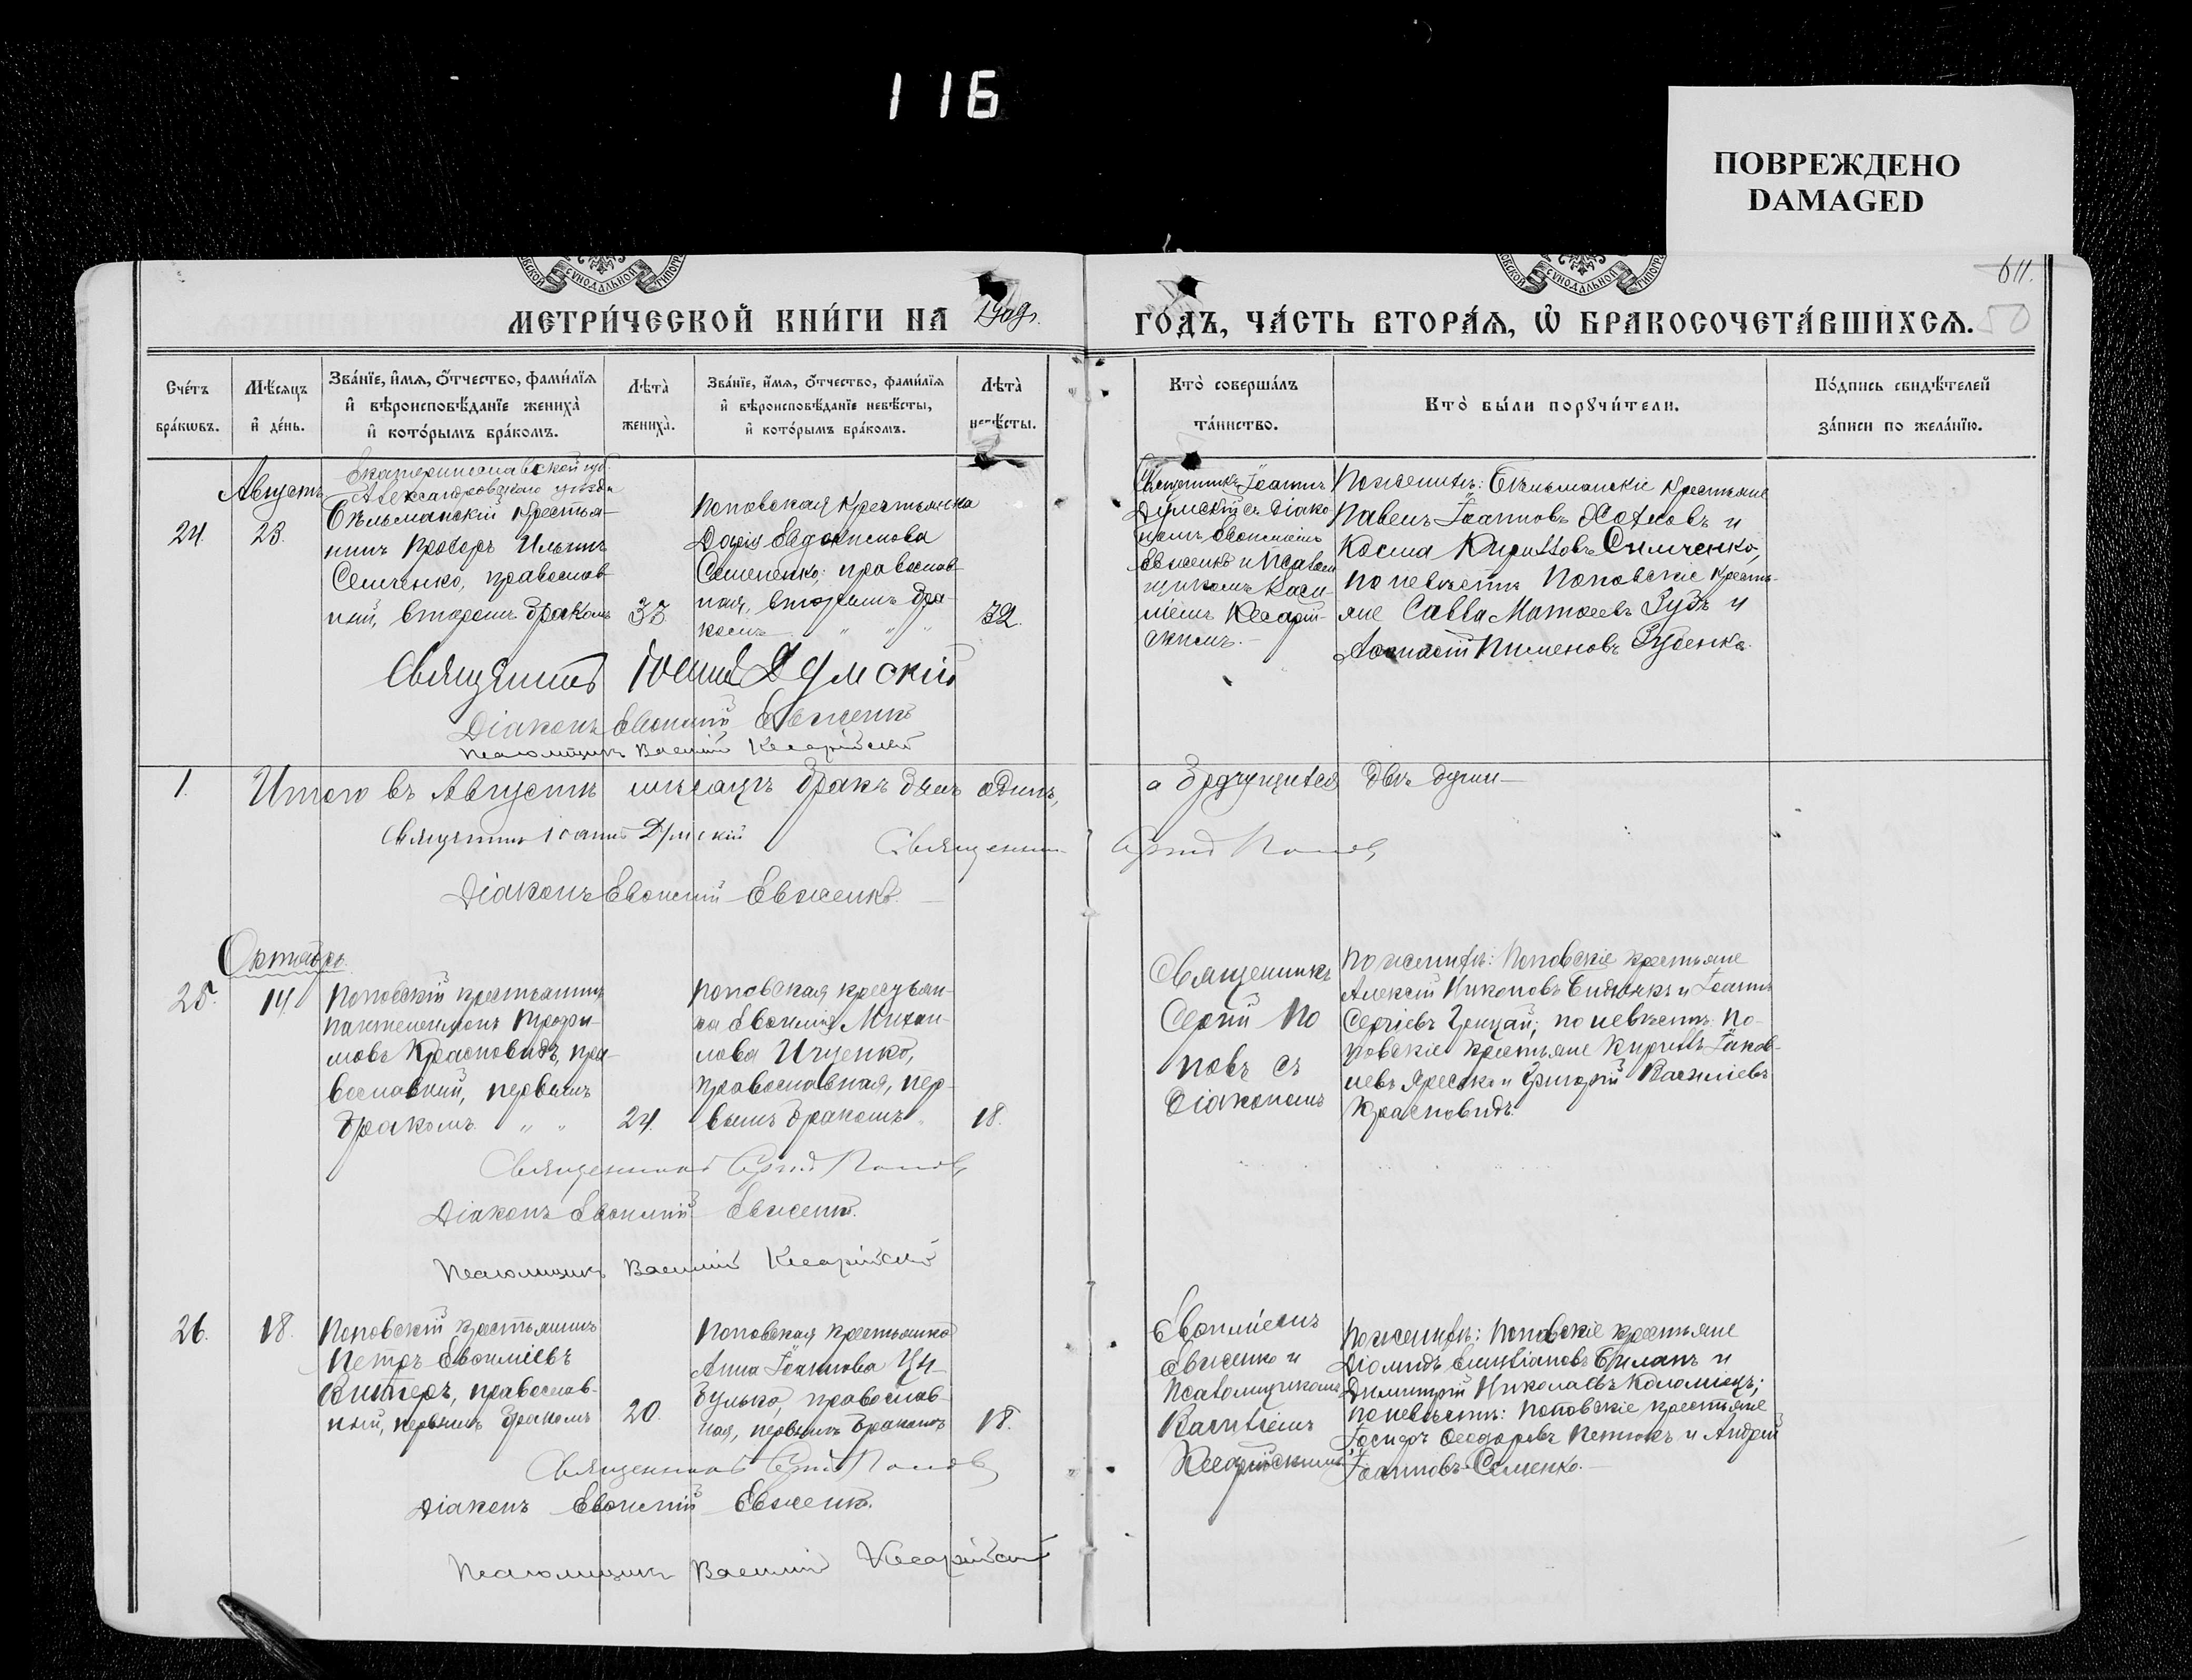 116
ПОВРЕЖДЕНО
DAMAGED
МЕТРИ́ЧЕСКОЙ КНИ́ГИ НА
ГО́ДЪ, ЧА́СТЬ ВТОРА́Ѧ, Ѽ БРАКОСОЧЕТА́ВШИХСѦ.
50
Сче́тъ бра́кѡвъ.
Мѣ́сяцъ и҆ де́нь.
Зва́нїе, и҆́мѧ, ѻ҆́тчество, фами́лїѧ
и҆ вѣроисповѣ́данїе жениха̀
и҆ кото́рымъ бра́комъ.
Лѣта̀ жениха̀.
Зва́нїе, и҆́мѧ, ѻ҆́тчество, фами́лїѧ
и҆ вѣроисповѣ́данїе невѣ́сты,
и҆ кото́рымъ бра́комъ.
Лѣта̀ невѣ́сты.
Кто̀ соверша́лъ та́инство.
Кто̀ бы́ли порꙋчи́тели.
По́дпись свидѣ́телей за́писи по жела́нїю.
Августъ
24.
23.
Екатеринославской губ.
Александровскаго уѣзда
Бѣльманскій крестья-
нинъ Прохоръ Ильинъ
Семченко, православ-
ный, вторымъ бракомъ
Поповская крестьянка
Дарія Евдокимова
Семененко, православ-
ная, вторымъ бра-
комъ " " "
32.
Священникъ Іоаннъ
Думскій съ діако-
номъ Евѳиміемъ
Евженко и псалом-
щикомъ Васи-
ліемъ Кесарій-
скимъ.
По женихѣ: Бѣльманскіе крестьяне
Павелъ Іоанновъ и
Косма Кирилловъ Симченко,
по невѣстѣ Поповскіе кресть-
яне Савва Матѳеевъ Зубъ и
Аѳанасій Пименовъ Зубенко.
Священникъ Іоаннъ Думскій
Діаконъ Евѳимій Евженко
Псаломщикъ Василій Кесарійскій
1.
Итого въ Августѣ мѣсяцѣ бракъ былъ одинъ,
а брачущихся двѣ души
Священникъ Іоаннъ Думскій
Священникъ Сергій Поповъ
Діаконъ Евѳимій Евженко.
Октябрь.
25.
14.
Поповскій крестьянинъ
Пантелеимонъ Трофи-
мовъ Красновидъ, пра-
вославный, первымъ
бракомъ. " "
24.
Поповская крестьян-
ка Евѳимія Михаи-
лова Ищенко,
православная, пер-
вымъ бракомъ "
18.
Священникъ
Сергій По
повъ съ
Діакономъ
По женихѣ: Поповскіе крестьяне
Алексій Никоновъ и Іоаннъ
Сергіевъ Грицай; по невѣстѣ По-
повскіе крестьяне Кириллъ Іаков-
левъ Яресько и Григорій Василіевъ
Красновидъ.
Священникъ Сергій Поповъ
Діаконъ Евѳимій Евженко.
Псаломщикъ Василій Кесарійскій
26.
18.
Поповскій крестьянинъ
Петръ Евѳиміевъ
православ-
ный, первымъ бракомъ
20.
Поповская крестьянка
Анна Іоаннова Ци-
булько, православ-
ная, первымъ бракомъ
18.
Евѳиміемъ
Евженко и
Псаломщикомъ
Василіемъ
Кесарійскимъ
По женихѣ: Поповскіе крестьяне
Діомидъ Биланъ и
Димитрій Николаевъ Коломіецъ;
по невѣстѣ: Поповскіе крестьяне
Іосифъ Ѳеодоровъ и Андрей
Іоанновъ Семенко.
Священникъ Сергій Поповъ
Діаконъ Евѳимій Евженко.
Псаломщикъ Василій Кесарійскій